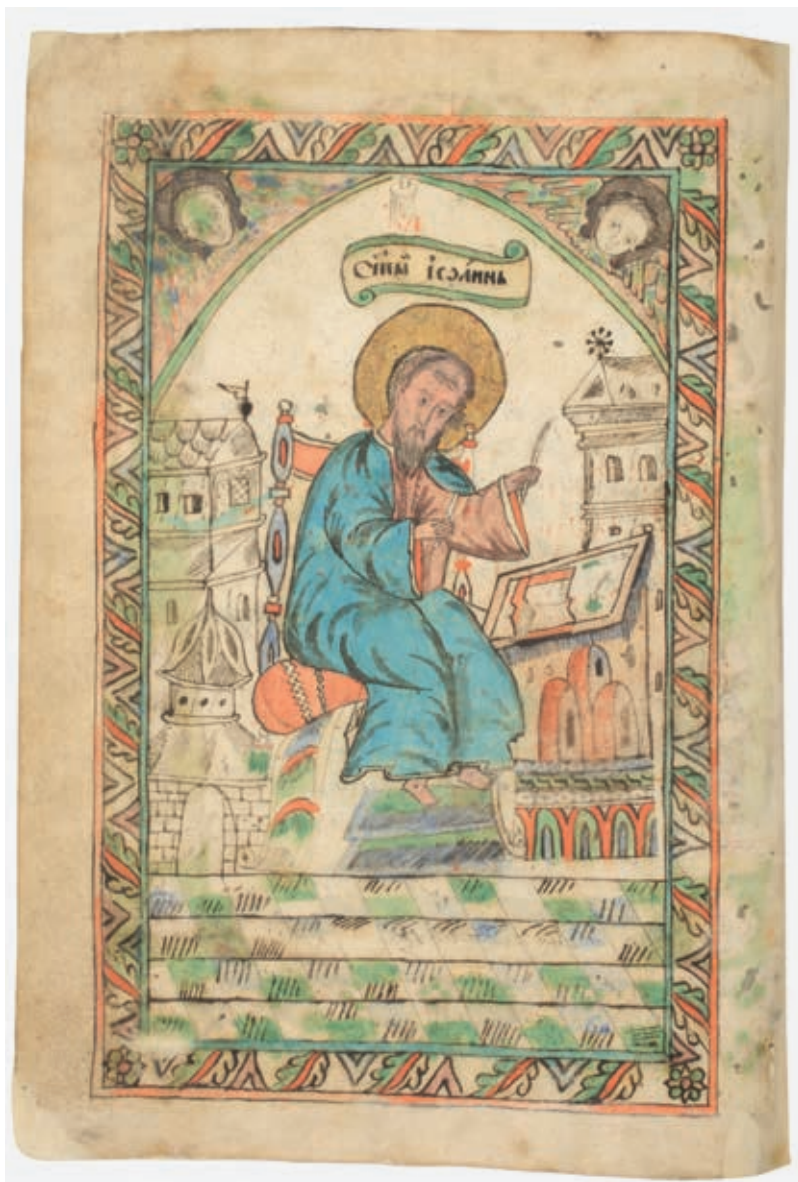 Ст҃ый іѡаннь